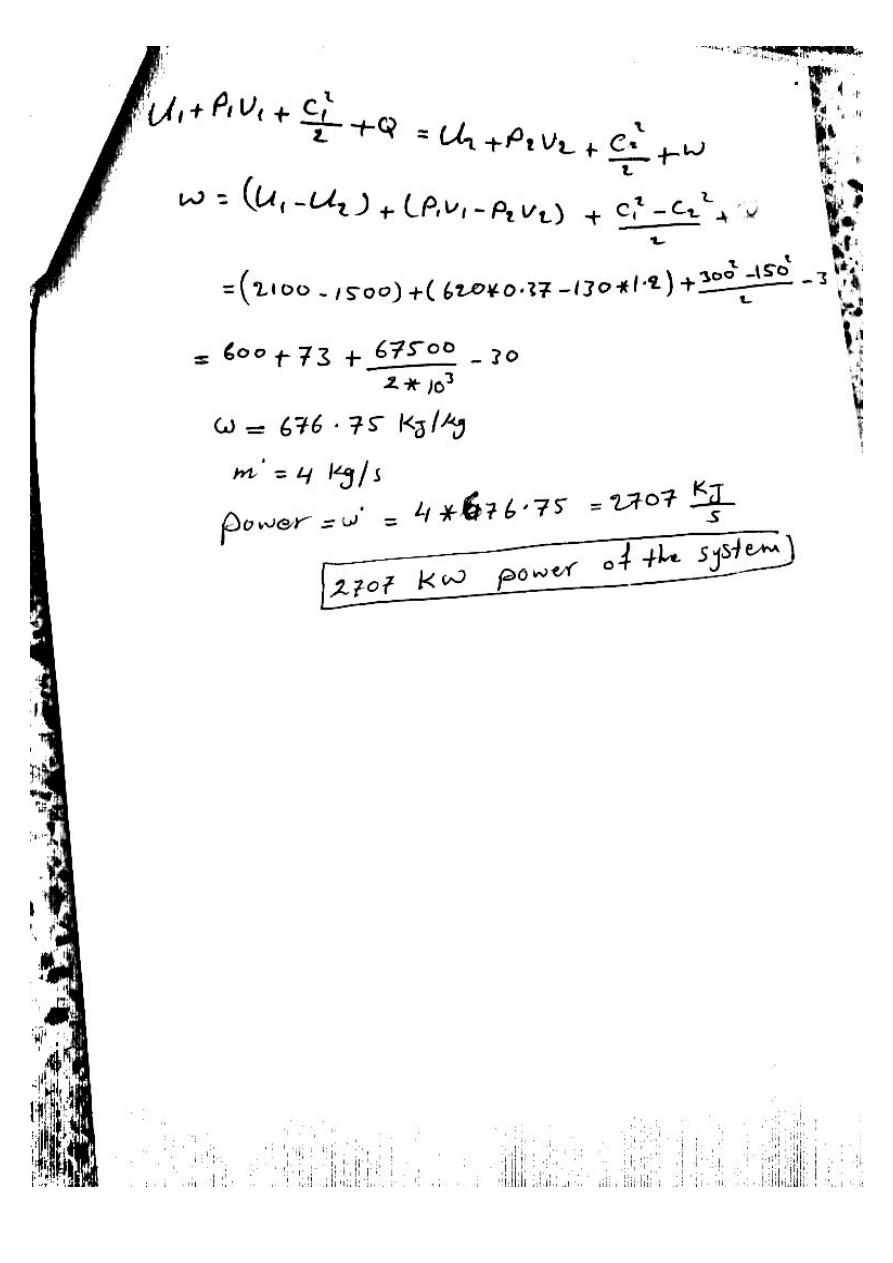 U₁ + P₁V₁ + C₁²/2 + Q = U₂ + P₂V₂ + C₂²/2 + W
W = (U₁ - U₂) + (P₁V₁ - P₂V₂) + (C₁² - C₂²)/2 +
= (2100 - 1500) + (620*0.37 - 130*1.2) + (300² - 150²)/2 - 3
= 600 + 73 + 67500/(2*10³) - 30
W = 676.75 KJ/kg
m˙ = 4 kg/s
Power = w˙ = 4*676.75 = 2707 KJ/S
2707 KW power of the system